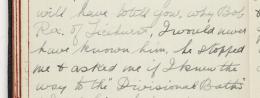 will have to tell you, why Bob
Rex. of Ticehurst, I would never
have known him, he stopped
me & asked me if I knew the
way to the "Divisional Baths"